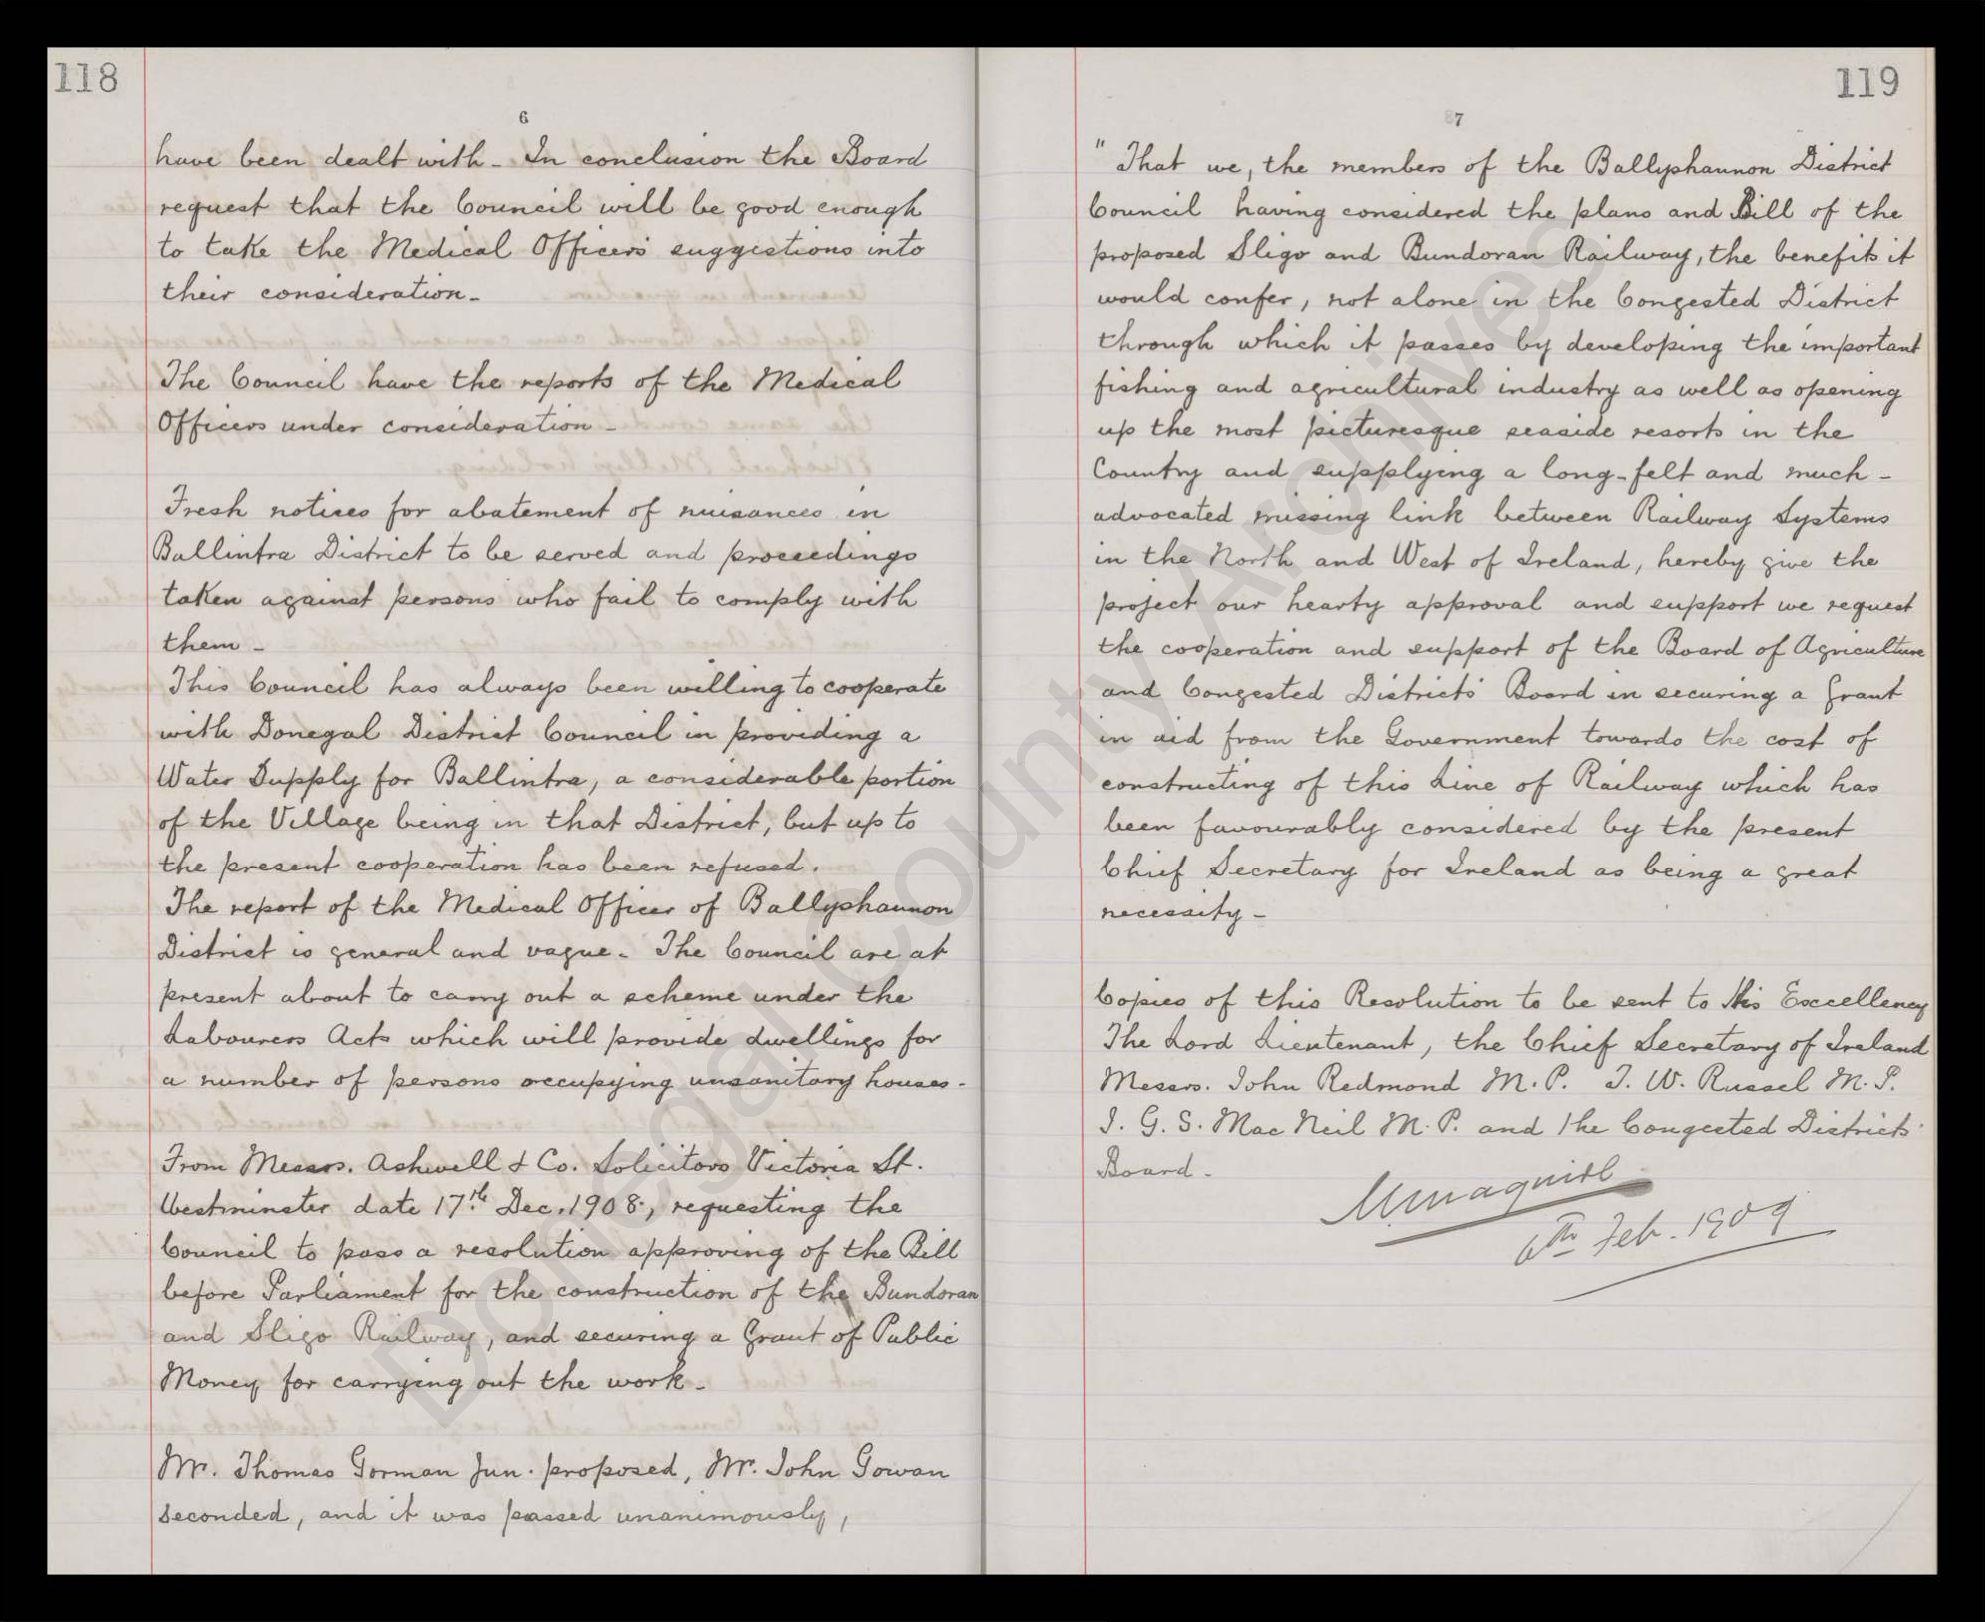 118
6
have been dealt with - In conclusion the Board
request that the Council will be good enough
to take the Medical Officers' suggestions into
their consideration -
The Council have the reports of the Medical
Officers under consideration -
Fresh notices for abatement of nuisances in
Ballintra District to be served and proceedings
taken against persons who fail to comply with
them -
This Council has always been willing to cooperate
with Donegal District Council in providing a
Water Supply for Ballintra, a considerable portion
of the Village being in that District, but up to
the present cooperation has been refused.
The report of the Medical Officer of Ballyshannon
District is general and vague - The Council are at
present about to carry out a scheme under the
Labourers Acts which will provide dwellings for
a number of persons occupying unsanitary houses -
From Messrs. Ashwell & Co. Solicitors Victoria St.
Westminster date 17th Dec. 1908, requesting the
Council to pass a resolution approving of the Bill
before Parliament for the construction of the Bundoran
and Sligo Railway, and securing a Grant of Public
Money for carrying out the work -
Mr. Thomas Gorman Jun. proposed, Mr. John Gowan
seconded, and it was passed unanimously,
119
7
" That we, the members of the Ballyshannon District
Council having considered the plans and Bill of the
proposed Sligo and Bundoran Railway, the benefits it
would confer, not alone in the Congested District
through which it passes by developing the important
fishing and agricultural industry as well as opening
up the most picturesque seaside resorts in the
Country and supplying a long-felt and much -
advocated missing link between Railway Systems
in the North and West of Ireland, hereby give the
project our hearty approval and support we request
the cooperation and support of the Board of Agriculture
and Congested Districts' Board in securing a Grant
in aid from the Government towards the cost of
constructing of this Line of Railway which has
been favourably considered by the present
Chief Secretary for Ireland as being a great
necessity -
Copies of this Resolution to be sent to His Excellency
The Lord Lieutenant, the Chief Secretary of Ireland
Messrs. John Redmond M.P. T. W. Russel M.P.
J. G. S. Mac Neil M.P. and the Congested Districts'
Board -
6th Feb. 1909
Donegal County Archives